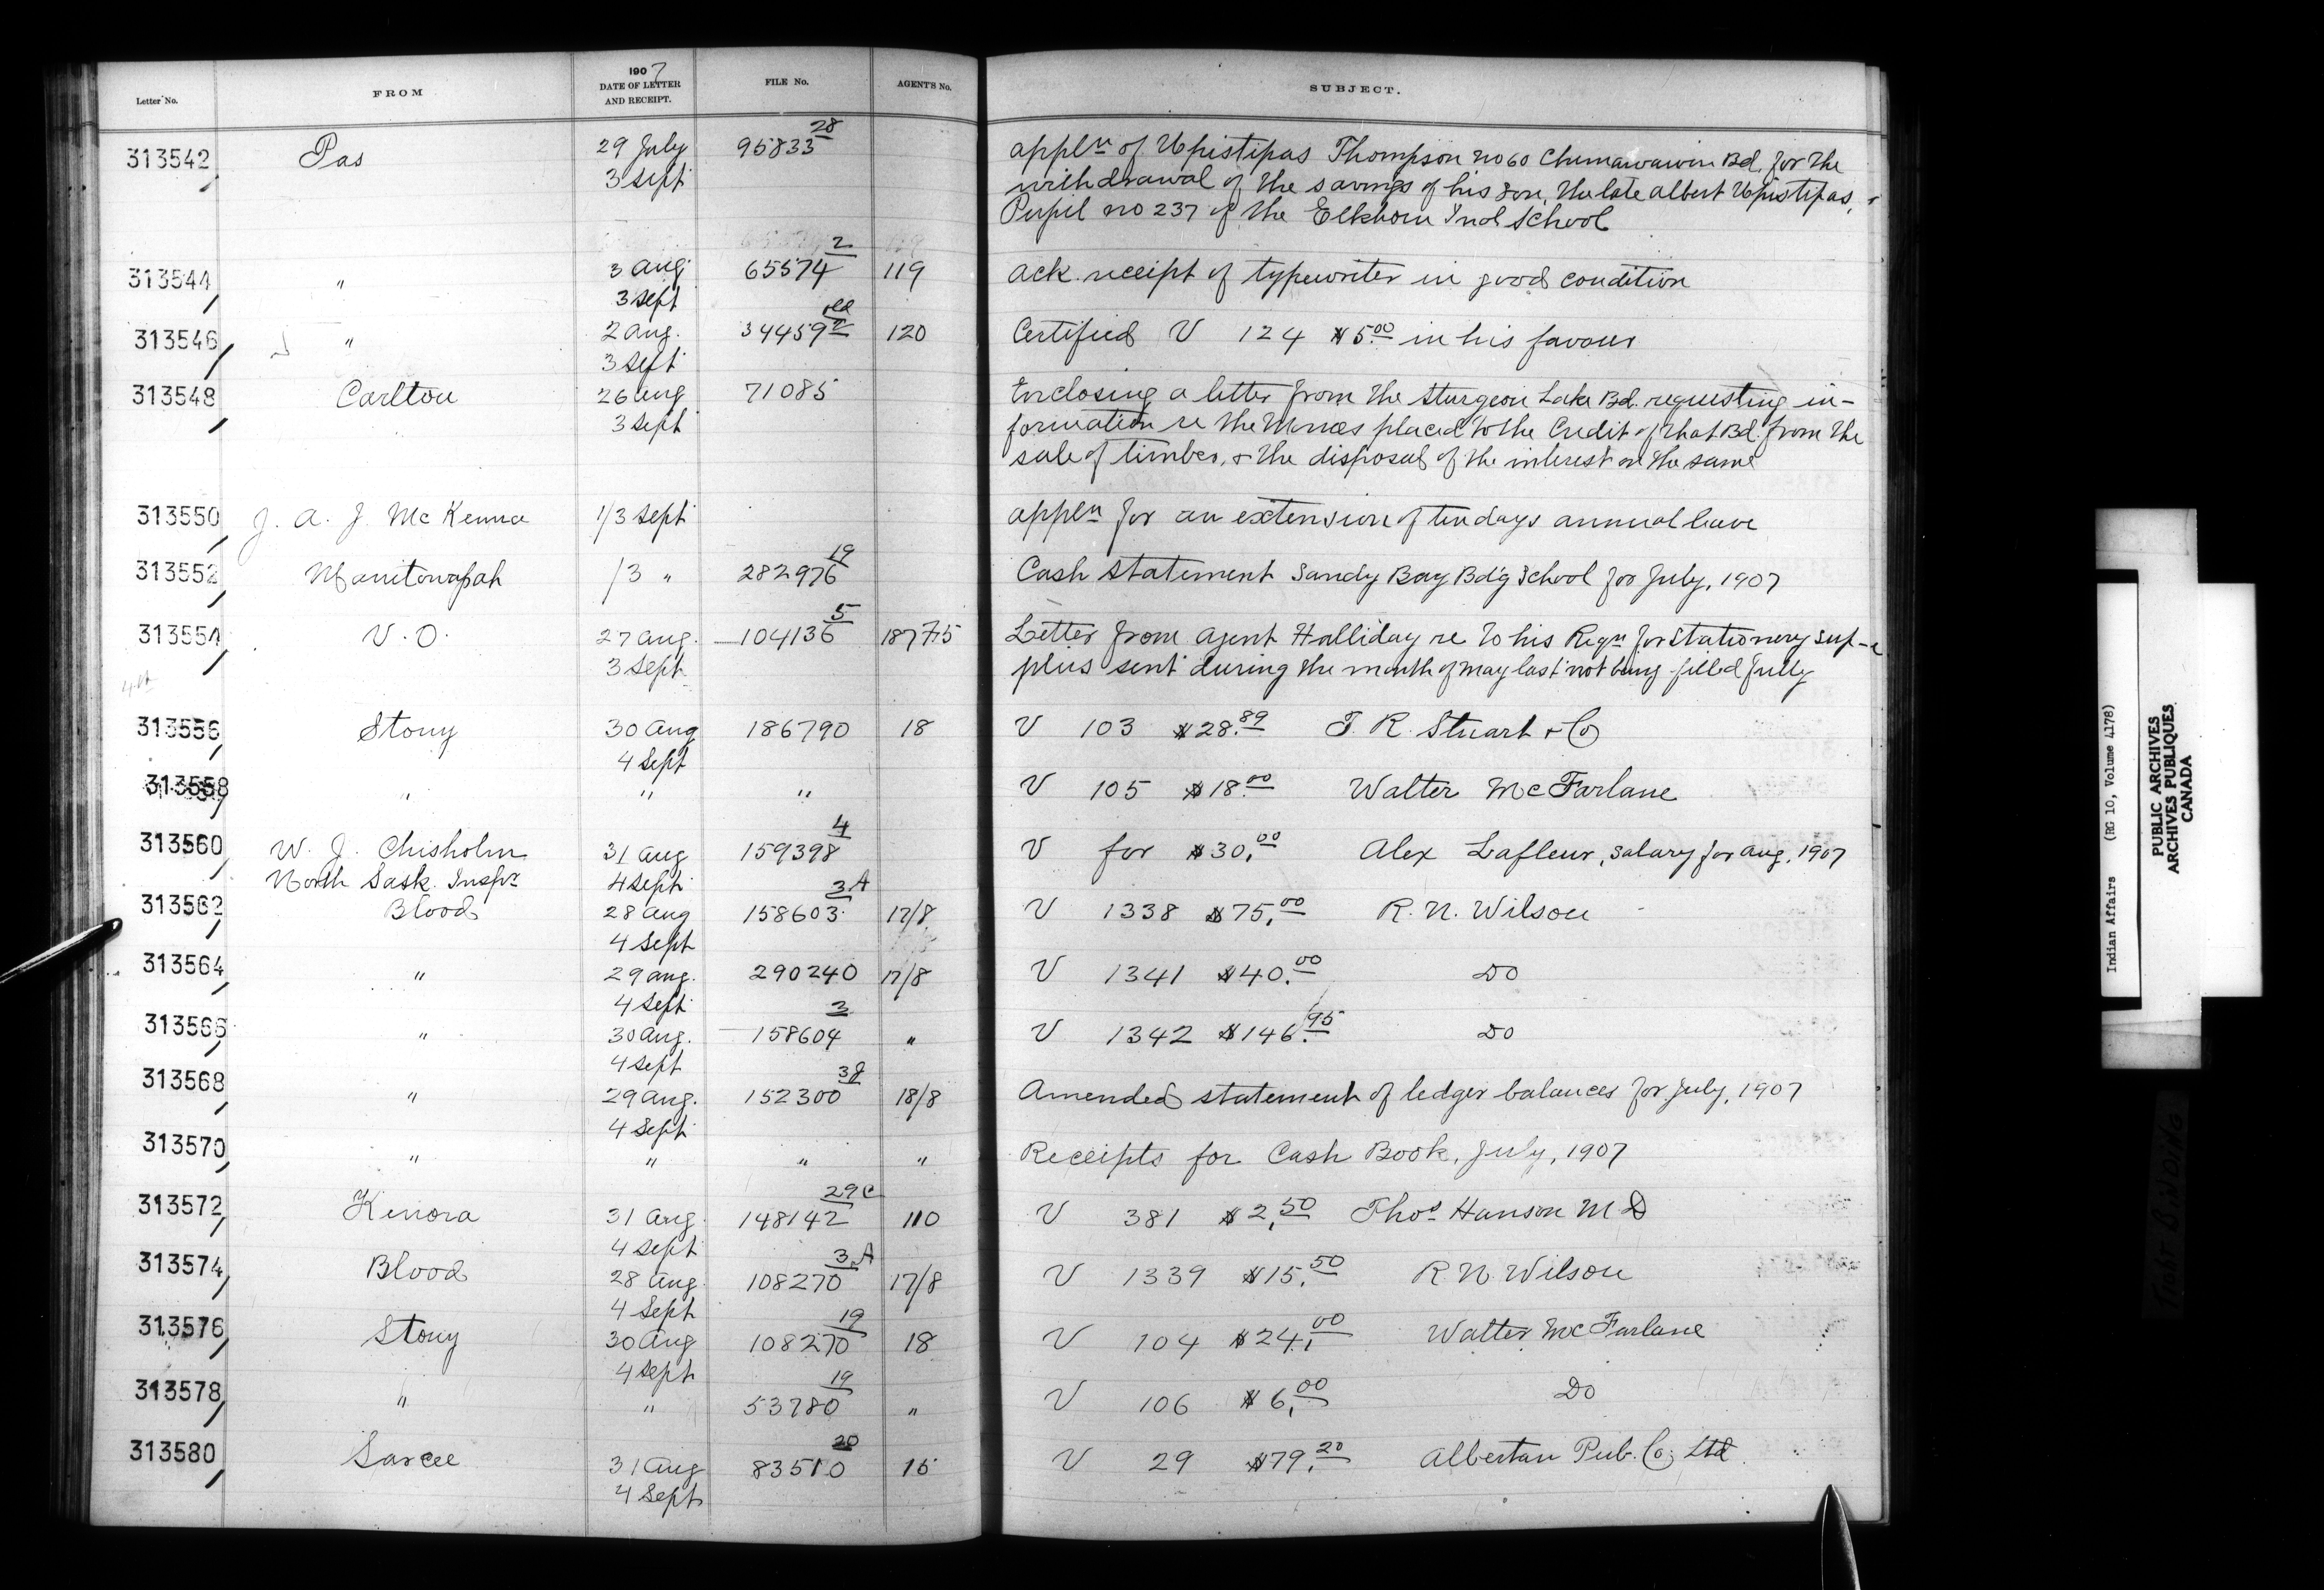 Letter No. FROM 1907 DATE OF LETTER AND RECEIPT. FILE No. AGENT'S No. SUBJECT.
313542 Pas 29 July 95833 28 appln of Upistipas Thompson no 60 Chemawawin Bd. for the
3 Sept withdrawal of the savings of his son, the late Albert Upistipas,
Pupil no 237 of the Elkhorn Ind School
313544 " 3 Aug 65574 2 119 Ack. receipt of typewriter in good condition
3 Sept
313546 " 2 Aug. 34459 2 old 120 Certified V 124 $5.00 in his favour
3 Sept
313548 Carlton 26 Aug 71085 Enclosing a letter from the Sturgeon Lake Bd. requesting in-
3 Sept formation re the placed to the Credit of that Bd. from the
sale of timber, & the disposal of the interest on the same
313550 J. A. J McKenna 1/3 Sept appln for an extension of ten days annual leave
313552 Manitowapah /3 " 282976 19 Cash statement Sandy Bay Bd'g School for July, 1907
313554 V. O. 27 Aug. 104136 5 Letter from Agent Halliday re to his Reqn for Stationery sup-
3 Sept plies sent during the month of May last not being filled fully
313556 Stony 30 Aug 186790 18 V 103 $28.89 T. R. Stuart & Co
4 Sept
313558 " " " V 105 $18.00 Walter McFarlane
313560 W. J. Chisholm 31 Aug 159398 4 V for $30.00 Alex Lafleur, salary for Aug, 1907
North Sask. Inspr 4 Sept
313562 Blood 28 Aug 158603 3A 17/8 V 1338 $75.00 R. N. Wilson
4 Sept
313564 " 29 Aug. 290240 17/8 V 1341 $40.00 Do
4 Sept
313566 " 30 Aug. 158604 3 " V 1342 $146.95 Do
4 Sept
313568 " 29 Aug. 152300 18/8 Amended statement of ledger balances for July, 1907
4 Sept
313570 " " " " Receipts for Cash Book, July, 1907
313572 Kenora 31 Aug. 148142 29C 110 V 381 $2.50 Thos Hanson M D
4 Sept
313574 Blood 28 Aug. 108270 3A 17/8 V 1339 $15.50 R N Wilson
4 Sept
313576 Stony 30 Aug 108270 19 18 V 104 $24.00 Walter McFarlane
4 Sept
313578 " " 53780 19 " V 106 $6.00 Do
313580 Sarcee 31 Aug 83510 20 15 V 29 $79.20 Albertan Pub. Co. Ltd.
4 Sept
Indian Affairs (RG 10, Volume 4178)
PUBLIC ARCHIVES
ARCHIVES PUBLIQUES
CANADA
TIGHT BINDING